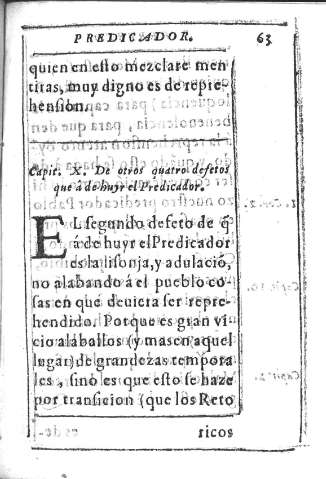 PREDICADOR. 63
quien en esto mezclare men
tiras, muy digno es de repre-
hension.
Capit. X. De otros quatro defetos
que â de huyr el Predicador.
EL segundo defeto de q̃
â de huyr el Predicador
es la lisonja, y adulaciõ,
no alabando á el pueblo co-
sas en que deuiera ser repre-
hendido. Porque es gran vi
cio alaballos (y mas en aquel
lugar) de grandezas tempora
les, sino es que esto se haze
por transicion (que los Reto
ricos